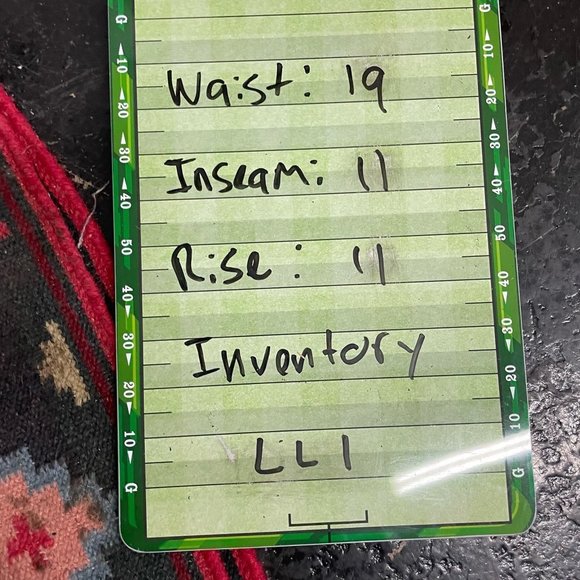 G 10 20 30 40 50 40 30 20 10 G
Waist: 19
Inseam: 11
Rise: 11
Inventory
LL1
10 20 30 40 50 40 30 20 10 G